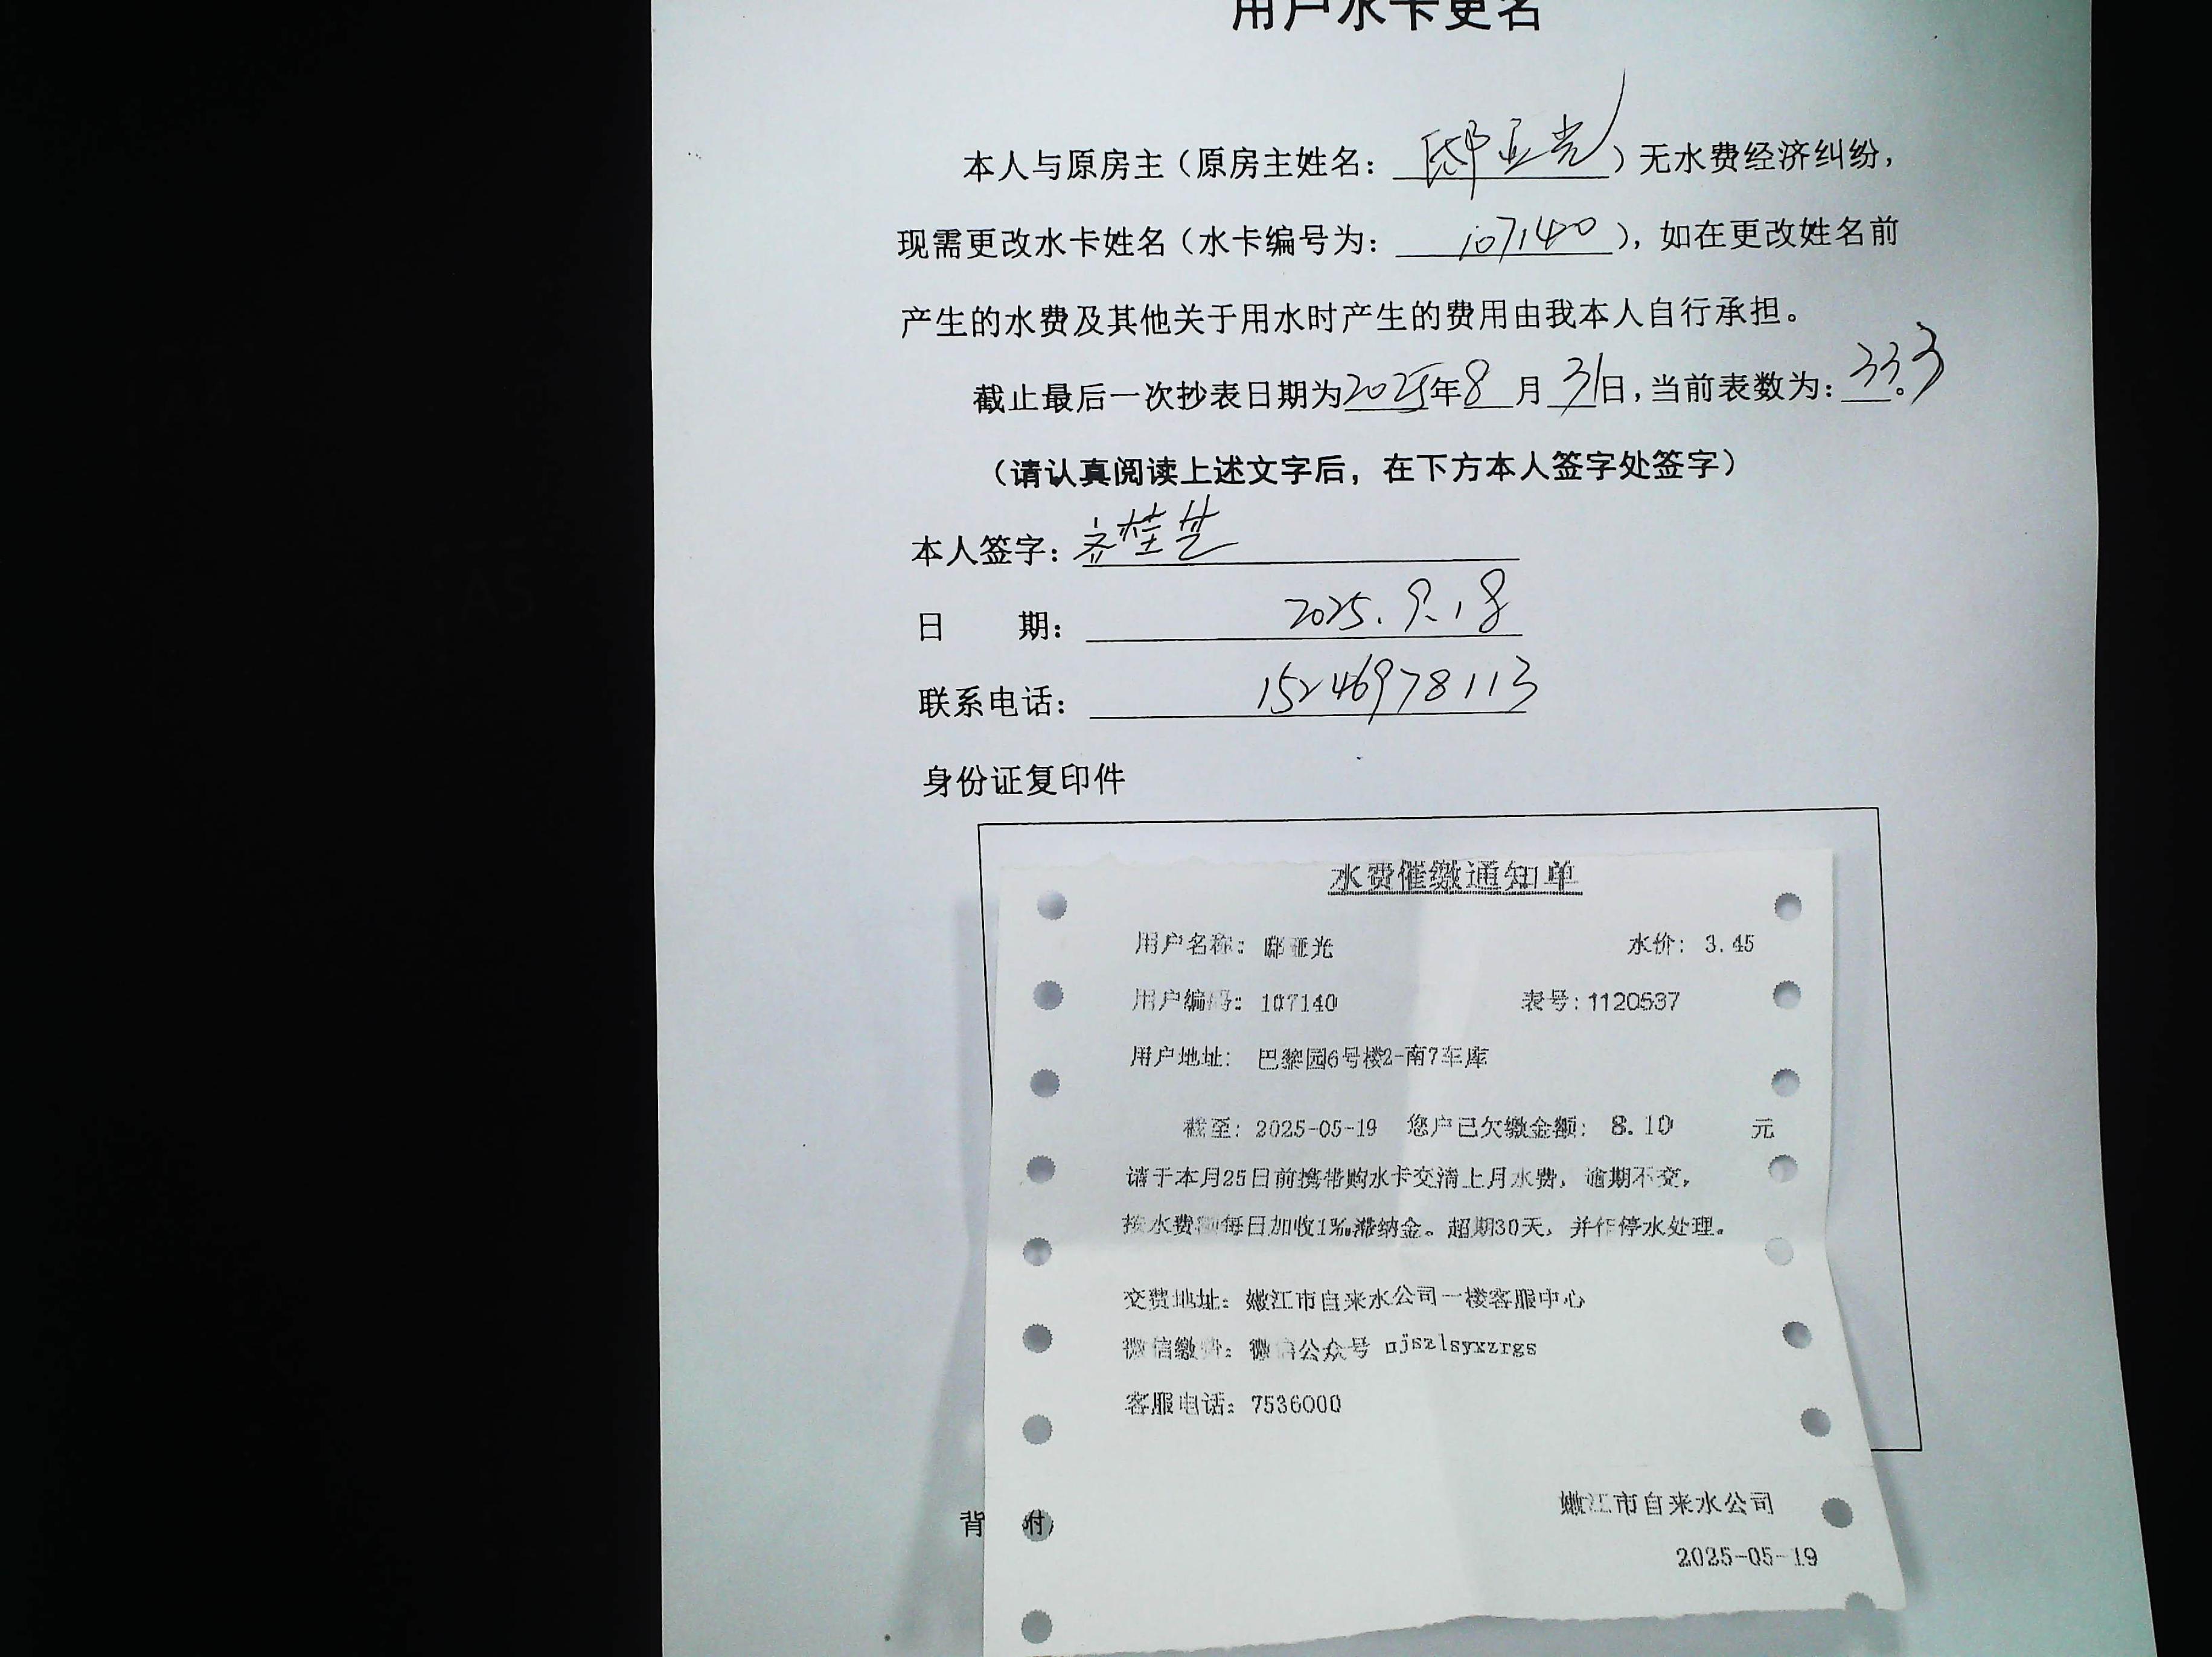 用户水卡更名
本人与原房主（原房主姓名：邸亚光）无水费经济纠纷，
现需更改水卡姓名（水卡编号为：107140），如在更改姓名前
产生的水费及其他关于用水时产生的费用由我本人自行承担。
截止最后一次抄表日期为2025年8月31日，当前表数为：333。
（请认真阅读上述文字后，在下方本人签字处签字）
本人签字：齐桂芝
日 期：2025.9.18
联系电话：15246978113
身份证复印件
水费催缴通知单
用户名称：邸亚光 水价：3.45
用户编码：107140 表号：1120537
用户地址：巴黎园6号楼2-南7车库
截至：2025-05-19 您户已欠缴金额：8.10 元
请于本月25日前携带购水卡交清上月水费，逾期不交，
按水费额每日加收1‰滞纳金。超期30天，并作停水处理。
交费地址：嫩江市自来水公司一楼客服中心
微信缴费：微信公众号 njszlsyxzrgs
客服电话：7536000
嫩江市自来水公司
2025-05-19
背 附